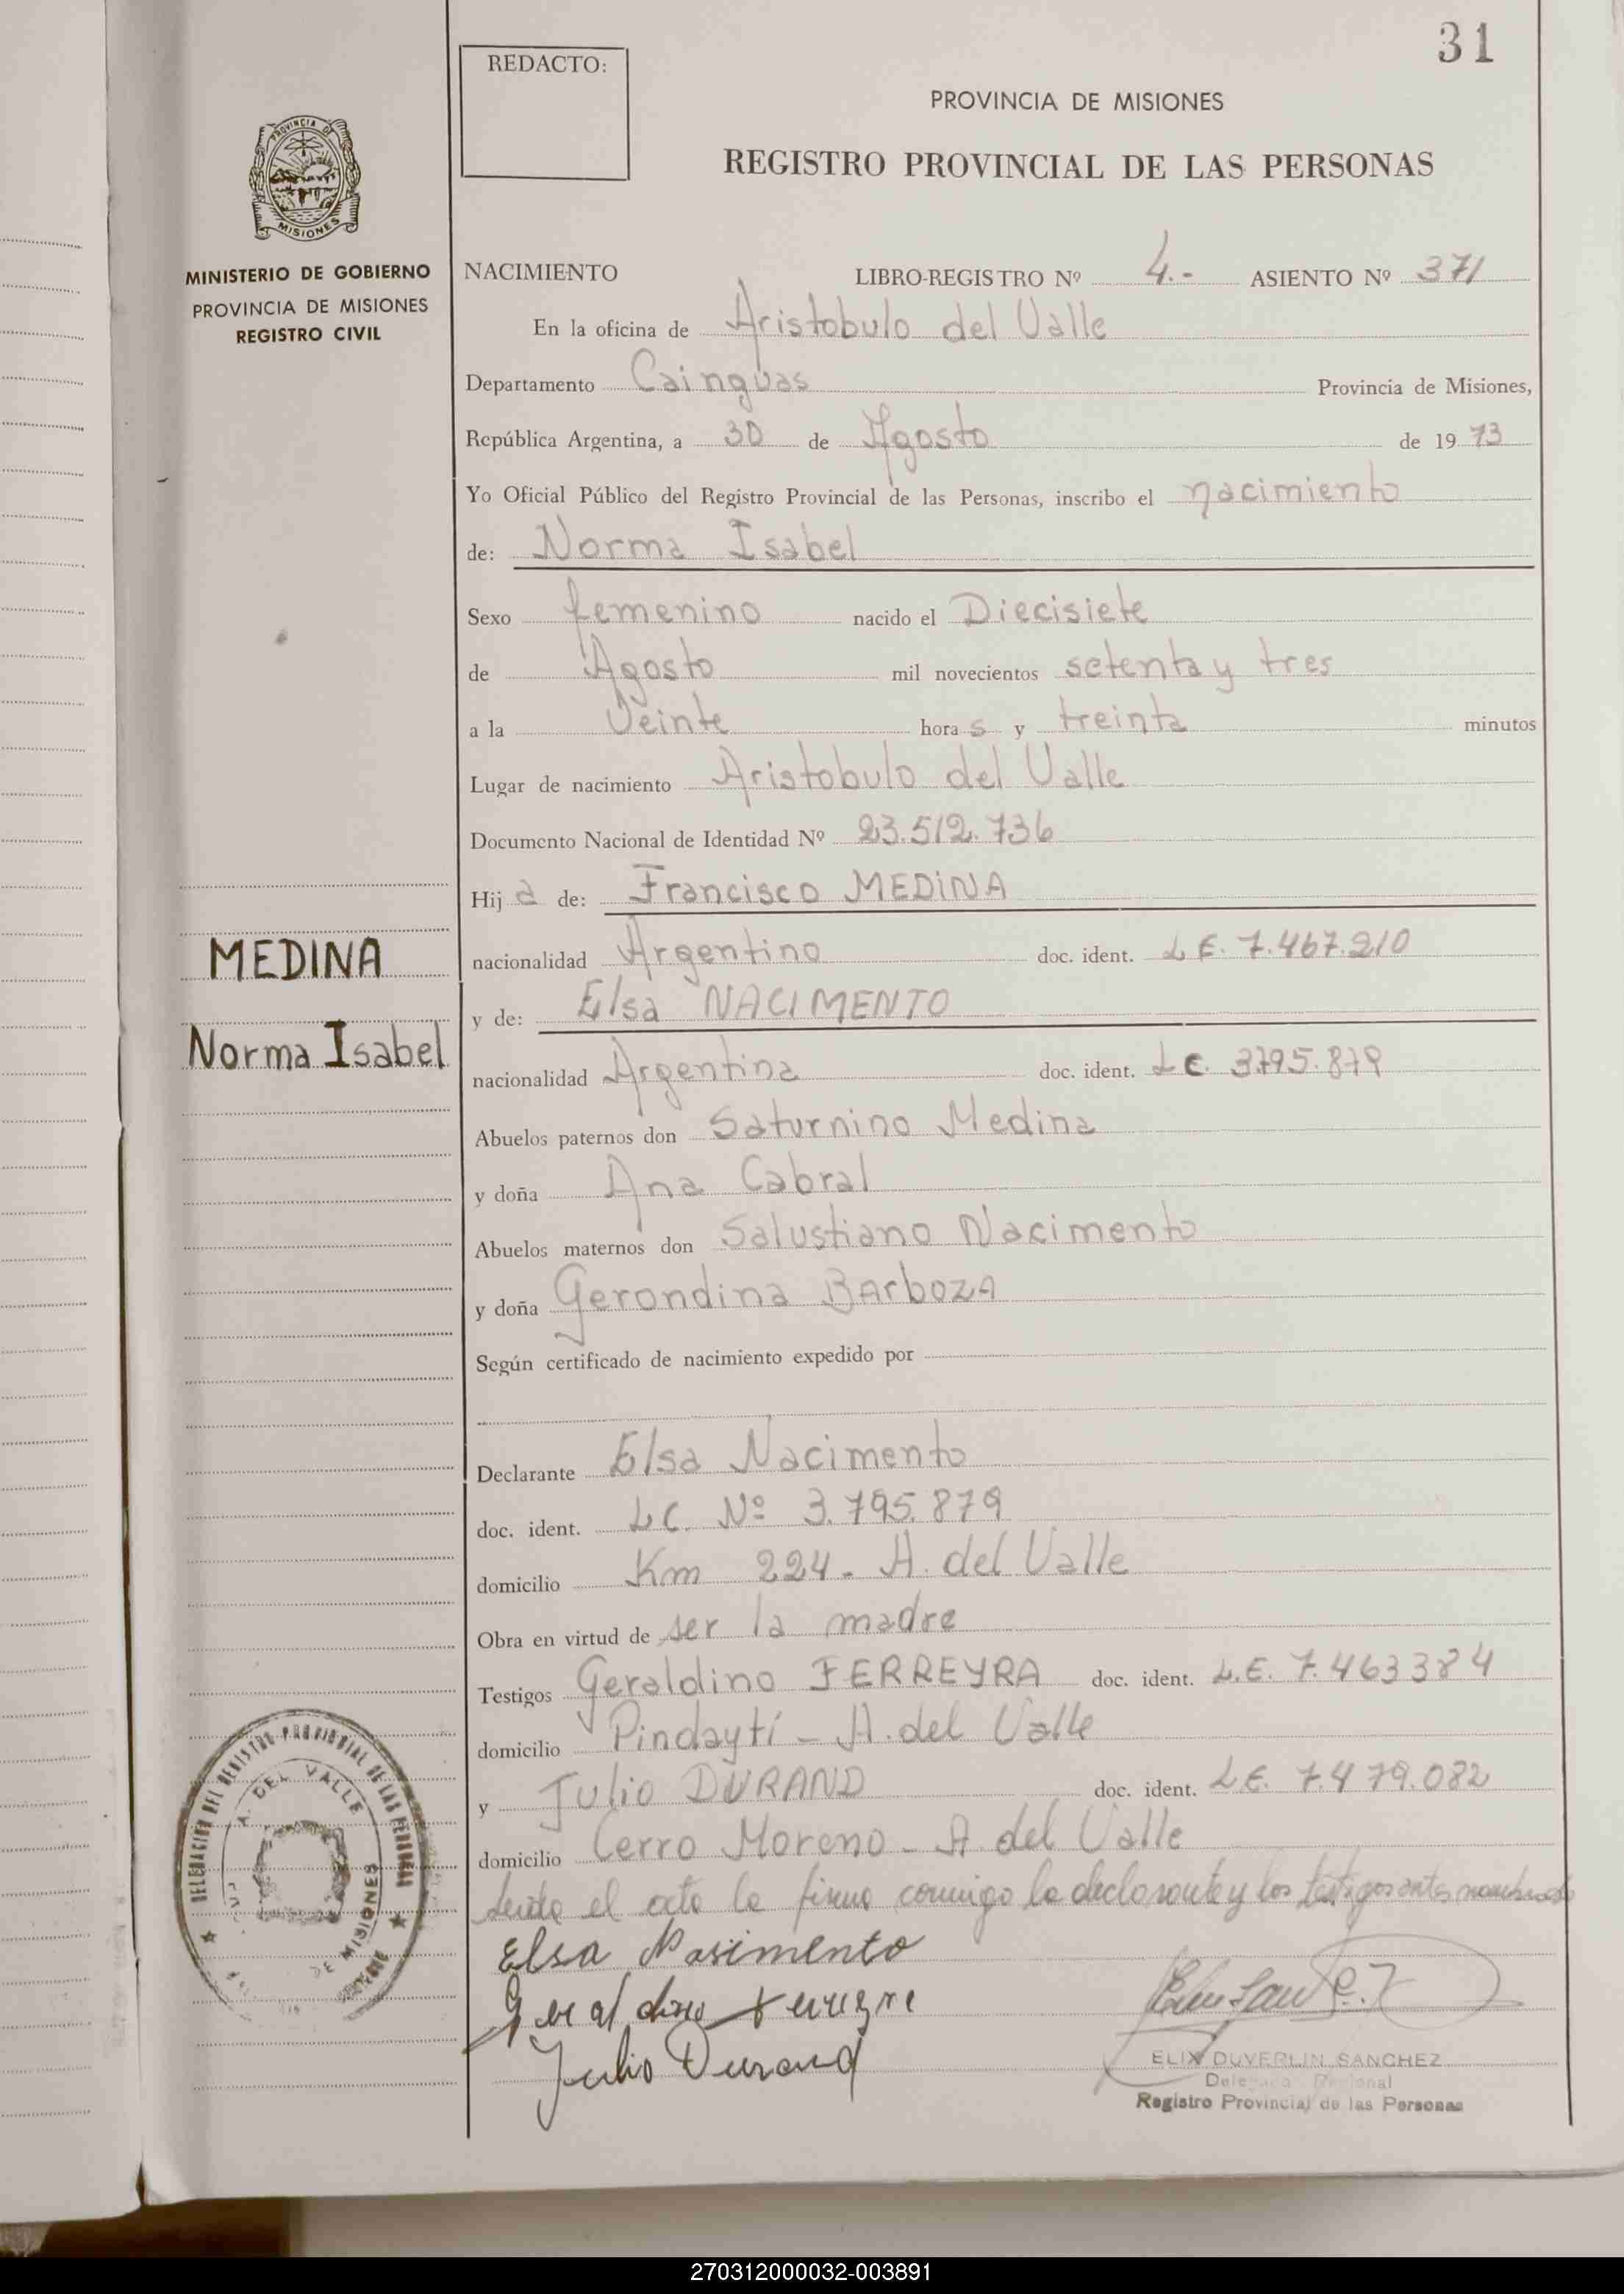 31
REDACTO:
PROVINCIA DE MISIONES
REGISTRO PROVINCIAL DE LAS PERSONAS
PROVINCIA DE
MISIONES
MINISTERIO DE GOBIERNO
PROVINCIA DE MISIONES
REGISTRO CIVIL
NACIMIENTO LIBRO-REGISTRO Nº 4.- ASIENTO Nº 371
En la oficina de Aristobulo del Valle
Departamento Cainguas Provincia de Misiones,
República Argentina, a 30 de Agosto de 1973
Yo Oficial Público del Registro Provincial de las Personas, inscribo el nacimiento
de: Norma Isabel
Sexo femenino nacido el Diecisiete
de Agosto mil novecientos setenta y tres
a la Veinte horas y treinta minutos
Lugar de nacimiento Aristobulo del Valle
Documento Nacional de Identidad Nº 23.512.736
Hija de: Francisco MEDINA
nacionalidad Argentino doc. ident. L E. 7.467.210
MEDINA
y de: Elsa NACIMENTO
Norma Isabel
nacionalidad Argentina doc. ident. L C. 3.795.879
Abuelos paternos don Saturnino Medina
y doña Ana Cabral
Abuelos maternos don Salustiano Nacimento
y doña Gerondina BArbozA
Según certificado de nacimiento expedido por
Declarante Elsa Nacimento
doc. ident. L C. Nº 3.795.879
domicilio Km 224- A. del Valle
Obra en virtud de ser la madre
Testigos Geraldino FERREYRA doc. ident. L.E. 7.463384
domicilio Pindaytí - A. del Valle
y Julio DURAND doc. ident. L E. 7.479.082
domicilio Cerro Moreno - A. del Valle
Leida el acta la firma conmigo la declarante y los testigos antes nombrados
Elsa Nasimento
Julio Durand
DELEGACION DEL REGISTRO PROVINCIAL DE LAS PERSONAS
A. DEL VALLE
DE MISIONES
ELIX DUVERLIN SANCHEZ
Delegado Regional
Registro Provincial de las Personas
270312000032-003891